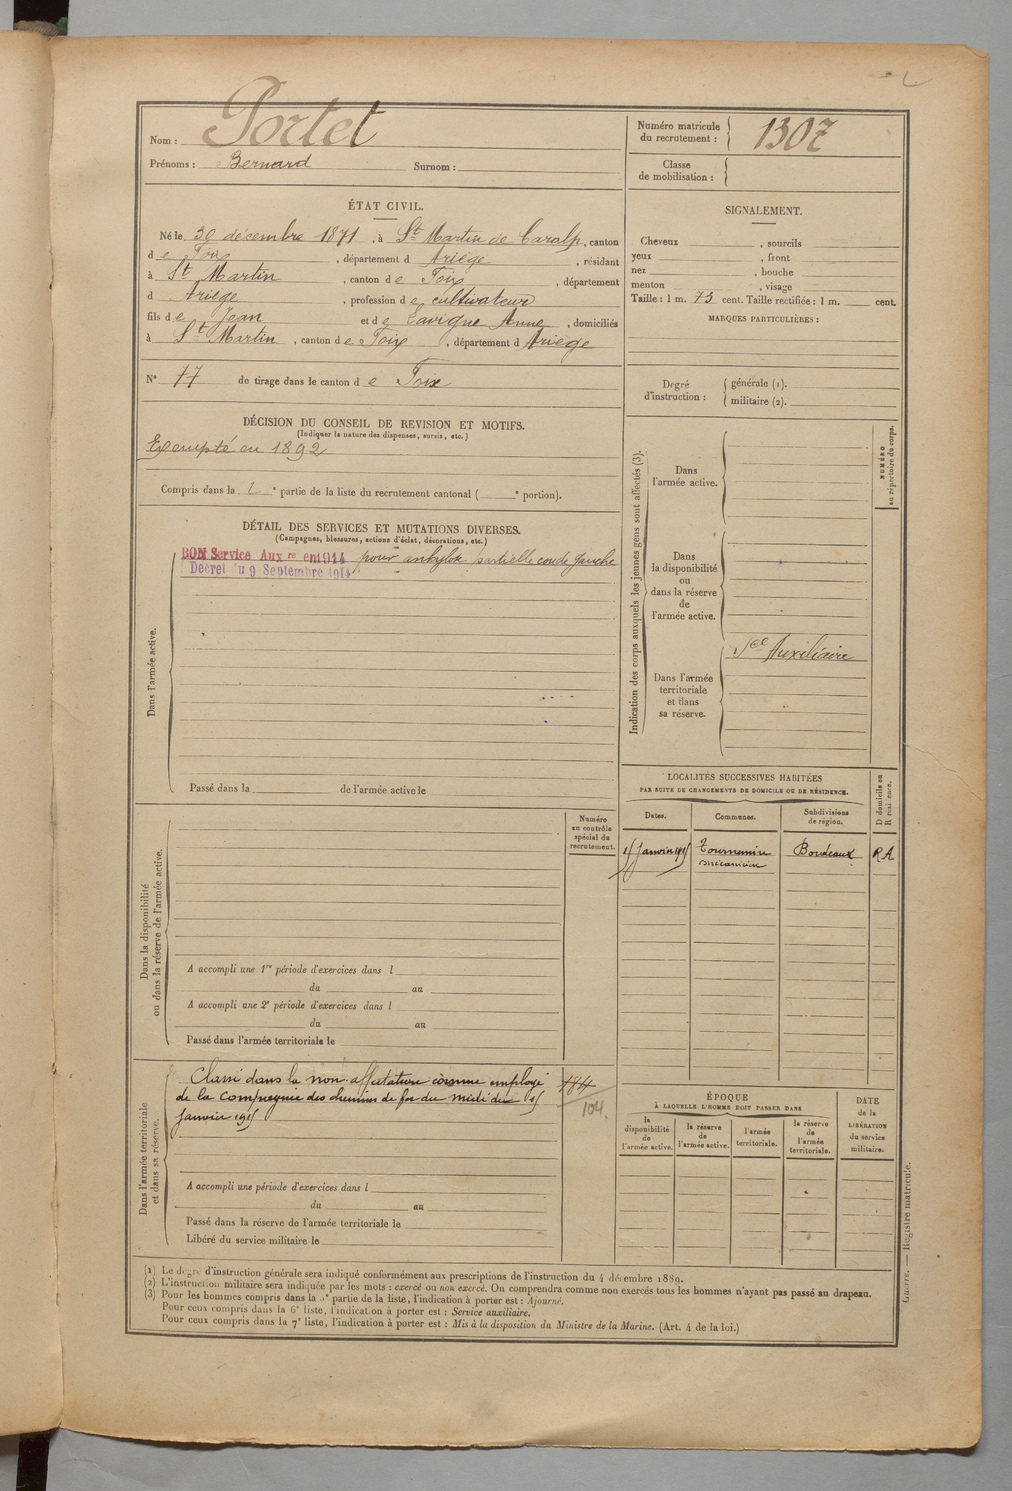 Nom : Portet
Prénoms : Bernard Surnom :
Numéro matricule du recrutement : 1307
Classe de mobilisation :
ÉTAT CIVIL.
Né le 30 décembre 1871, à St Martin de Caralp, canton
de Foix, département d Ariège, résidant
à St Martin, canton de Foix, département
d Ariège, profession de cultivateur
fils de Jean et de Lavigne Anne, domiciliés
à St Martin, canton de Foix, département d Ariège
N° 77 de tirage dans le canton de Foix
SIGNALEMENT.
Cheveux , sourcils
yeux , front
nez , bouche
menton , visage
Taille : 1 m. 73 cent. Taille rectifiée : 1 m. cent.
MARQUES PARTICULIÈRES :
Degré d'instruction : générale (1).
militaire (2).
DÉCISION DU CONSEIL DE REVISION ET MOTIFS.
(Indiquer la nature des dispenses, sursis, etc.)
Exempté en 1892
Compris dans la e partie de la liste du recrutement cantonal ( e portion).
DÉTAIL DES SERVICES ET MUTATIONS DIVERSES.
(Campagnes, blessures, actions d'éclat, décorations, etc.)
BON Service Auxre en 1914 pour ankylose partielle coude gauche
Décret du 9 Septembre 1914
Dans l'armée active.
Passé dans la de l'armée active le
Indication des corps auxquels les jeunes gens sont affectés (3).
NUMÉRO au répertoire du corps.
Dans l'armée active.
Dans la disponibilité ou dans la réserve de l'armée active.
Dans l'armée territoriale et dans sa réserve.
Sce Auxiliaire
LOCALITÉS SUCCESSIVES HABITÉES
PAR SUITE DE CHANGEMENTS DE DOMICILE OU DE RÉSIDENCE.
Dates. Communes. Subdivisions de région. D domicile ou R résidence.
15 Janvier 1915 Tournemire Bordeaux RA
mécanicien
Dans la disponibilité ou dans la réserve de l'armée active.
Numéro au contrôle spécial du recrutement.
A accompli une 1re période d'exercices dans l
du au
A accompli une 2e période d'exercices dans l
du au
Passé dans l'armée territoriale le
Dans l'armée territoriale et dans sa réserve.
Classé dans la non-affectation comme employé
de la Compagnie des chemins de fer du midi du 15
Janvier 1915
184
104.
A accompli une période d'exercices dans l
du au
Passé dans la réserve de l'armée territoriale le
Libéré du service militaire le
ÉPOQUE
À LAQUELLE L'HOMME DOIT PASSER DANS
la disponibilité de l'armée active. la réserve de l'armée active. l'armée territoriale. la réserve de l'armée territoriale.
DATE de la LIBÉRATION du service militaire.
(1) Le degré d'instruction générale sera indiqué conformément aux prescriptions de l'instruction du 4 décembre 1889.
(2) L'instruction militaire sera indiquée par les mots : exercé ou non exercé. On comprendra comme non exercés tous les hommes n'ayant pas passé au drapeau.
(3) Pour les hommes compris dans la e partie de la liste, l'indication à porter est : Ajourné.
Pour ceux compris dans la 6e liste, l'indication à porter est : Service auxiliaire.
Pour ceux compris dans la 7e liste, l'indication à porter est : Mis à la disposition du Ministre de la Marine. (Art. 4 de la loi.)
Guerre. — Registre matricule.